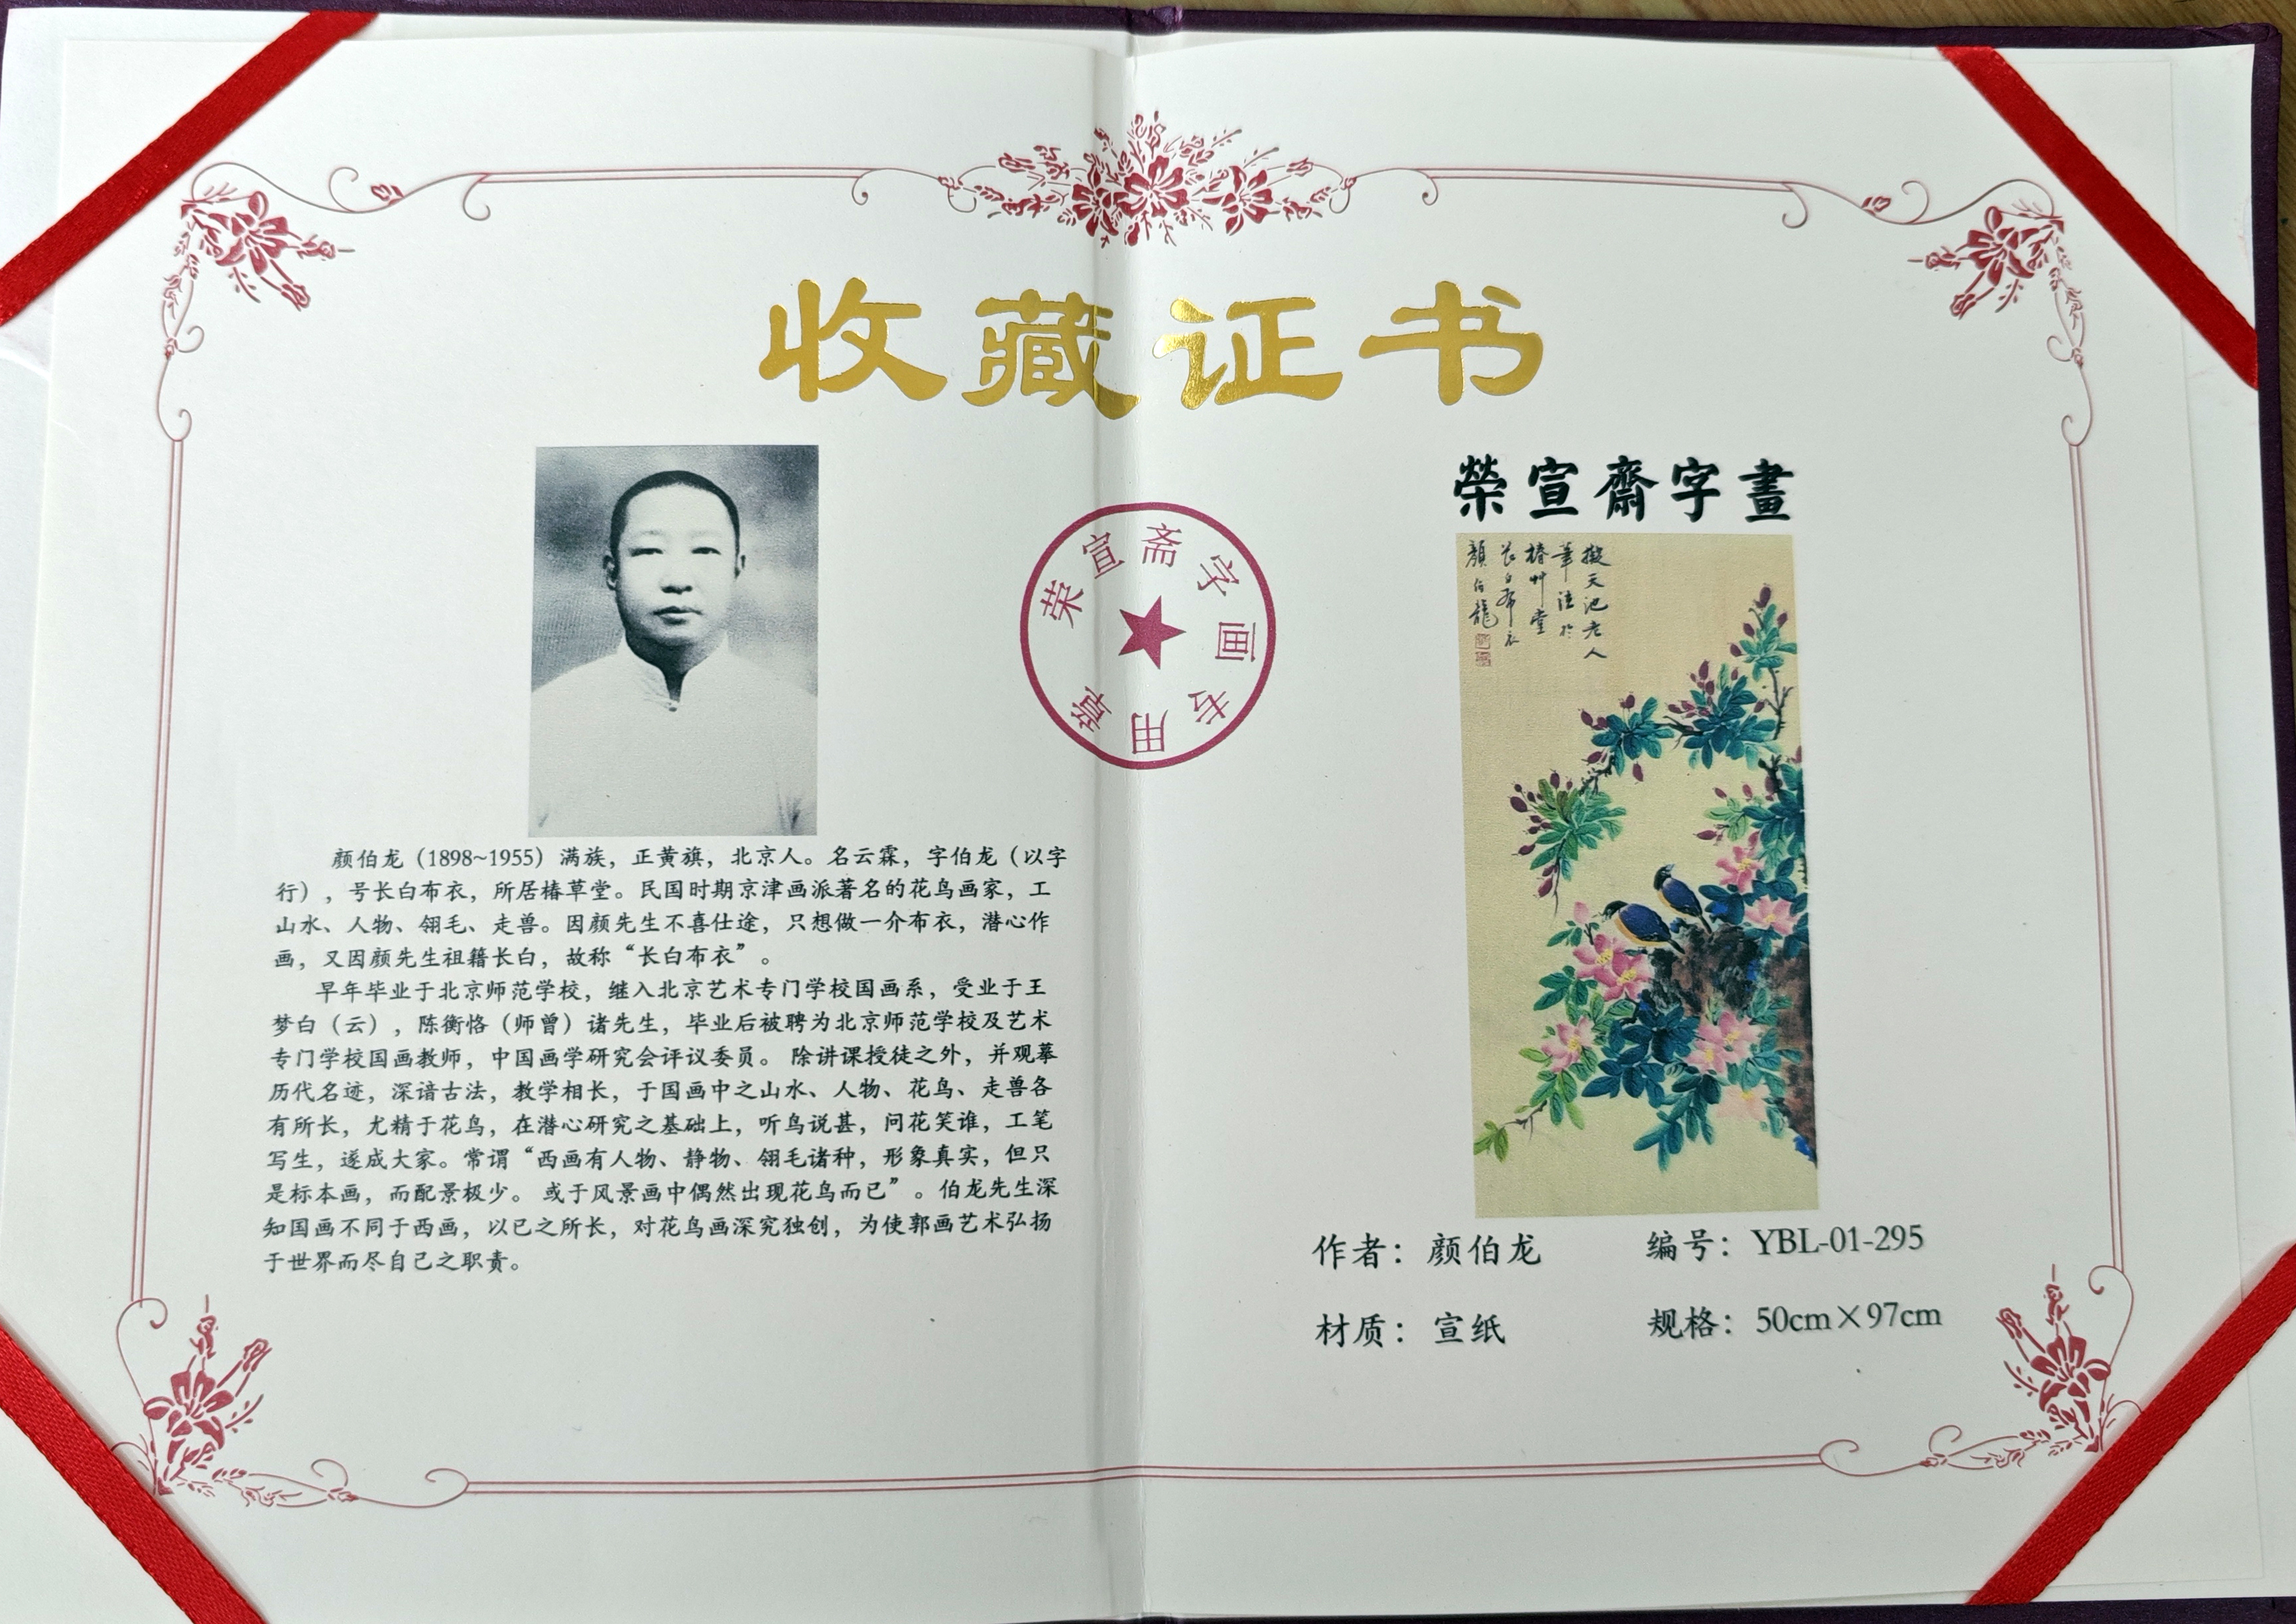 收藏证书
颜伯龙（1898~1955）满族，正黄旗，北京人。名云霖，字伯龙（以字
行），号长白布衣，所居椿草堂。民国时期京津画派著名的花鸟画家，工
山水、人物、翎毛、走兽。因颜先生不喜仕途，只想做一介布衣，潜心作
画，又因颜先生祖籍长白，故称“长白布衣”。
早年毕业于北京师范学校，继入北京艺术专门学校国画系，受业于王
梦白（云），陈衡恪（师曾）诸先生，毕业后被聘为北京师范学校及艺术
专门学校国画教师，中国画学研究会评议委员。 除讲课授徒之外，并观摹
历代名迹，深谙古法，教学相长，于国画中之山水、人物、花鸟、走兽各
有所长，尤精于花鸟，在潜心研究之基础上，听鸟说甚，问花笑谁，工笔
写生，遂成大家。常谓“西画有人物、静物、翎毛诸种，形象真实，但只
是标本画，而配景极少。 或于风景画中偶然出现花鸟而已”。伯龙先生深
知国画不同于西画，以已之所长，对花鸟画深究独创，为使郭画艺术弘扬
于世界而尽自己之职责。
荣宣斋字画专用章
榮宣齋字畫
擬天池老人
筆法於
椿艸堂
長白布衣
顏伯龍
作者：颜伯龙
编号：YBL-01-295
材质：宣纸
规格：50cm×97cm